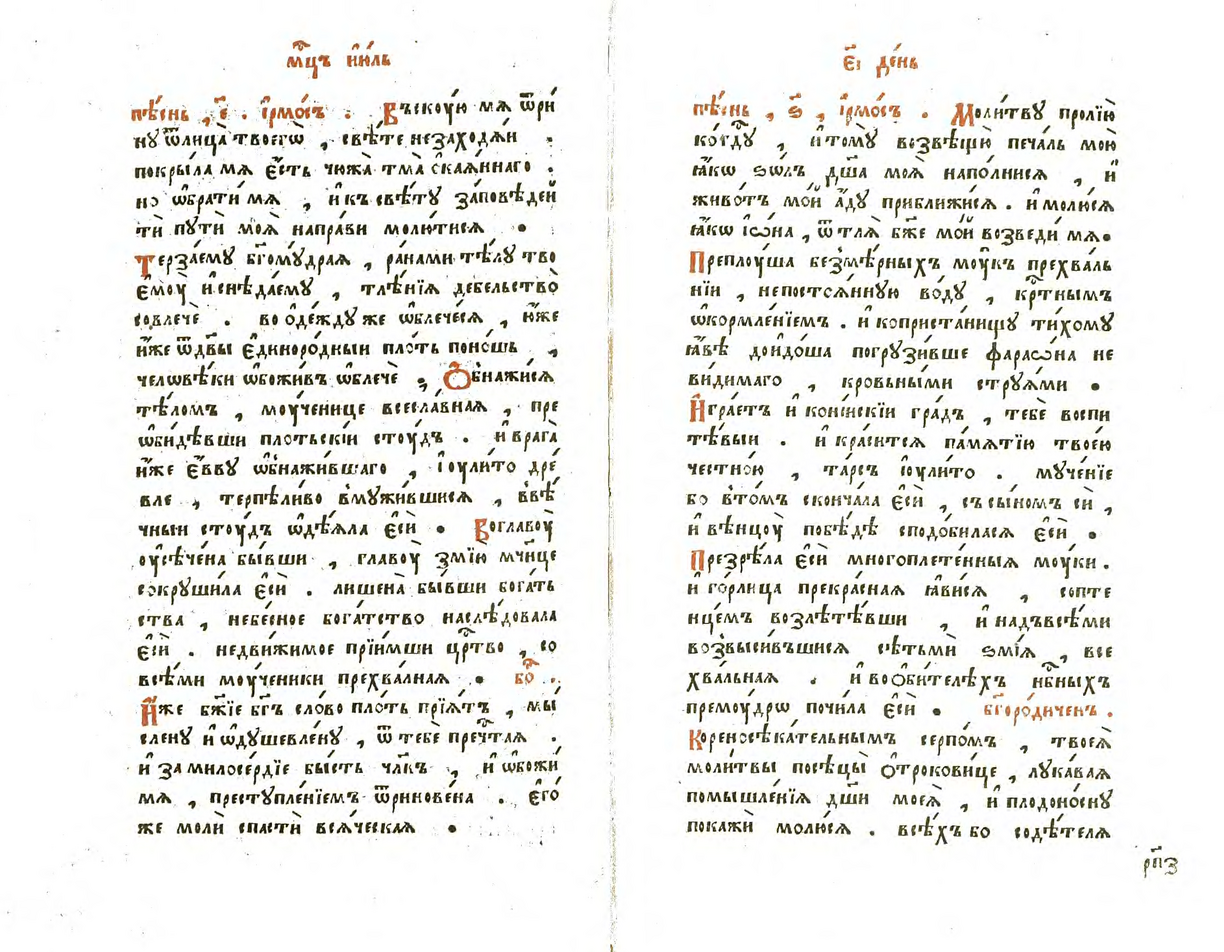 мⷭ҇цъ і҆ю́ль
пѣ́снь , є҃ . і҆рмо́съ . Въскоую мѧ ѿри́
ну ѿлица̀ твоегѡ̀ , свѣ́те незаходѧ́и .
покры́ла мѧ є҆́сть чюжа̀ тма̀ ѻ҆каѧ́ннаго .
но ѡ҆брати́ мѧ , и҆ къ свѣ́ту за́повѣдей
тѝ путѝ моѧ̀ напра́ви молю́тисѧ •
Терза́ему бг҃ому́драѧ , ра́нами тѣ́лу тво
є҆моу̀ и҆ снѣда́ему , тлѣ́нїѧ дебельство̀
совлечѐ . во ѻ҆де́жду же ѡ҆блече́сѧ , ю҆́же
и҆́же ѿ дв҃ы є҆диноро́дныи пло́ть поно́шь ,
человѣ́ки ѡ҆божи́въ ѡ҆блечѐ , Ѻ҆бнажи́сѧ
тѣ́ломъ , моу́ченице всесла́внаѧ , пре
ѡ҆би́дѣвши пло́тьскїи стоу́дъ . и҆ врага̀
и҆́же є҆́вву ѡ҆бнажи́вшаго , і҆оули́то дре́
вле , терпѣли́во в̾мужи́вшисѧ , в̾вѣ́
чныи стоу́дъ ѡ҆дѣ́ѧла є҆сѝ • Воглавоу̀
оу҆сѣче́на бы́вши , главоу̀ змі́ю мч҃нце
сокруши́ла є҆сѝ . лише́на бы́вши бога́ть
ства , небе́сное бога́тство наслѣ́довала
є҆сѝ . недви́жимое прїи́мши црⷭ҇тво , со
всѣ́ми моу́ченики прехва́лнаѧ • бⷪ҇ .
И҆́же бж҃їе бг҃ъ сло́во пло́ть прїѧ́тъ , мы́
слену и҆ ѡ҆душевле́ну , ѿ тебѐ пречⷭ҇таѧ .
и҆ за милосе́рдїе бы́сть чл҃къ , и҆ ѡ҆божи́
мѧ , преступле́нїемъ ѿринове́на . є҆го́
же молѝ спастѝ всѧ́ческаѧ •
є҃і де́нь
пѣ́снь , ѕ҃ , і҆рмо́съ . Моли́тву пролїю̀
ко гдⷭ҇у , и҆ тому̀ возвѣщю̀ печа́ль мою̀
ꙗ҆́кѡ ѕѡ́лъ дш҃а моѧ̀ напо́лнисѧ , и҆
живо́тъ мо́й а҆́ду прибли́жисѧ . и҆ молю́сѧ
ꙗ҆́кѡ і҆ѡ́на , ѿ тлѧ̀ бж҃е мо́й возведѝ мѧ •
Преплоу́ша безмѣ́рныхъ моу́къ прехва́ль
нїи , непостоѧ́нную во́ду , крⷭ҇тнымъ
ѡ҆кормле́нїемъ . и҆ копристани́щу ти́хому
ꙗ҆́вѣ доидо́ша погрузи́вше фараѡ́на не
ви́димаго , кро́вьными струѧ́ми •
И҆гра́етъ и҆ коні́искїи гра́дъ , тебѐ воспи
тѣ́выи . и҆ краси́тсѧ па́мѧтїю твоею
честно́ю , та́рсъ і҆оули́то . муче́нїе
бо в̾то́мъ сконча́ла є҆сѝ , съ сы́номъ сѝ ,
и҆ вѣнцоу̀ побѣ́дѣ сподо́биласѧ є҆сѝ •
Презрѣ́ла є҆сѝ многоплете́нныѧ моу́ки .
и҆ го́рлица прекра́снаѧ ꙗ҆ви́сѧ , сопте
нце́мъ возлетѣ́вши , и҆ надъ всѣ́ми
возвы́сившисѧ сѣтьмѝ ѕмі́ѧ , все
хва́льнаѧ . и҆ во ѻ҆би́телѣхъ нбⷭ҇ныхъ
премоу́дрѡ почи́ла є҆сѝ • бг҃оро́диченъ .
Кореносѣка́тельнымъ серпо́мъ , твоеѧ̀
моли́твы посѣцы̀ ѻ҆трокови́це , лука́ваѧ
помышле́нїѧ дш҃и моеѧ̀ , и҆ плодоно́сну
покажѝ молю́сѧ . всѣ́хъ бо содѣ́телѧ
рп҃з